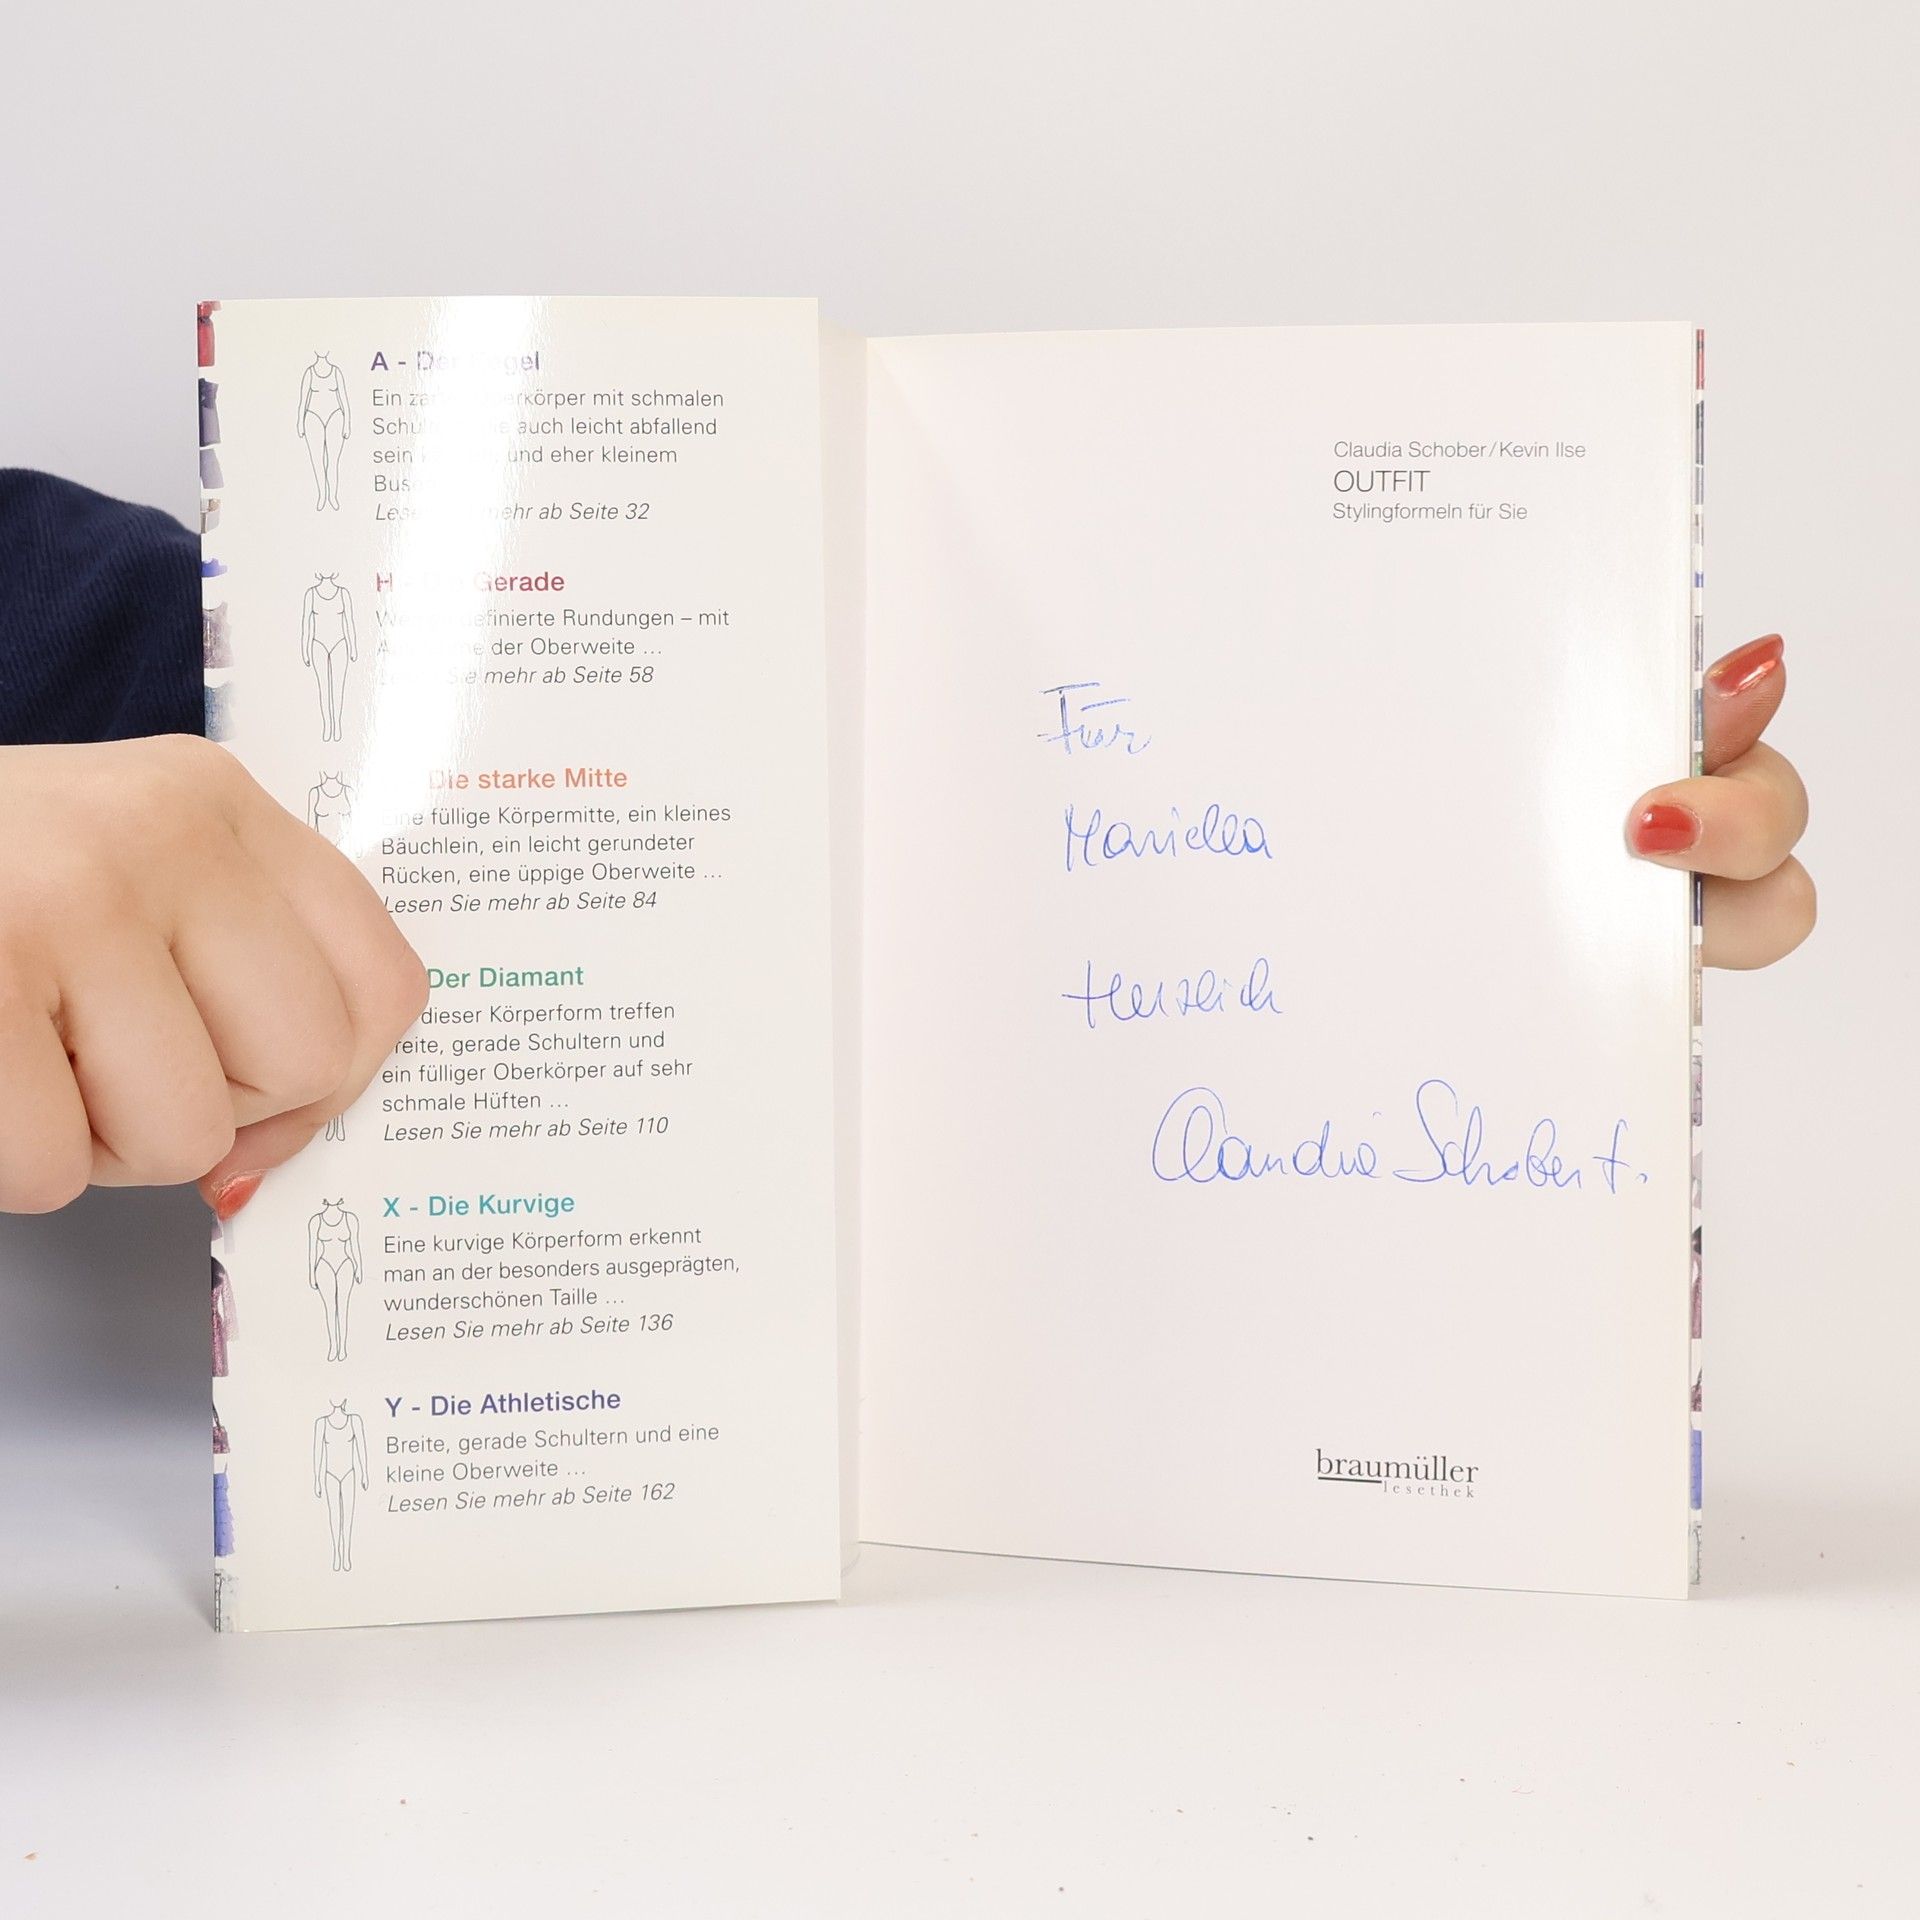 A - Der Kegel
Ein zarter Oberkörper mit schmalen
auch leicht abfallend
sein und eher kleinem
Lesen mehr ab Seite 32
H - Die Gerade
Wenig definierte Rundungen – mit
der Oberweite ...
Sie mehr ab Seite 58
Die starke Mitte
Eine füllige Körpermitte, ein kleines
Bäuchlein, ein leicht gerundeter
Rücken, eine üppige Oberweite ...
Lesen Sie mehr ab Seite 84
Der Diamant
dieser Körperform treffen
breite, gerade Schultern und
ein fülliger Oberkörper auf sehr
schmale Hüften ...
Lesen Sie mehr ab Seite 110
X - Die Kurvige
Eine kurvige Körperform erkennt
man an der besonders ausgeprägten,
wunderschönen Taille ...
Lesen Sie mehr ab Seite 136
Y - Die Athletische
Breite, gerade Schultern und eine
kleine Oberweite ...
Lesen Sie mehr ab Seite 162
Claudia Schober/Kevin Ilse
OUTFIT
Stylingformeln für Sie
Für
Herzlich
Claudia Schober
braumüller
lesethek